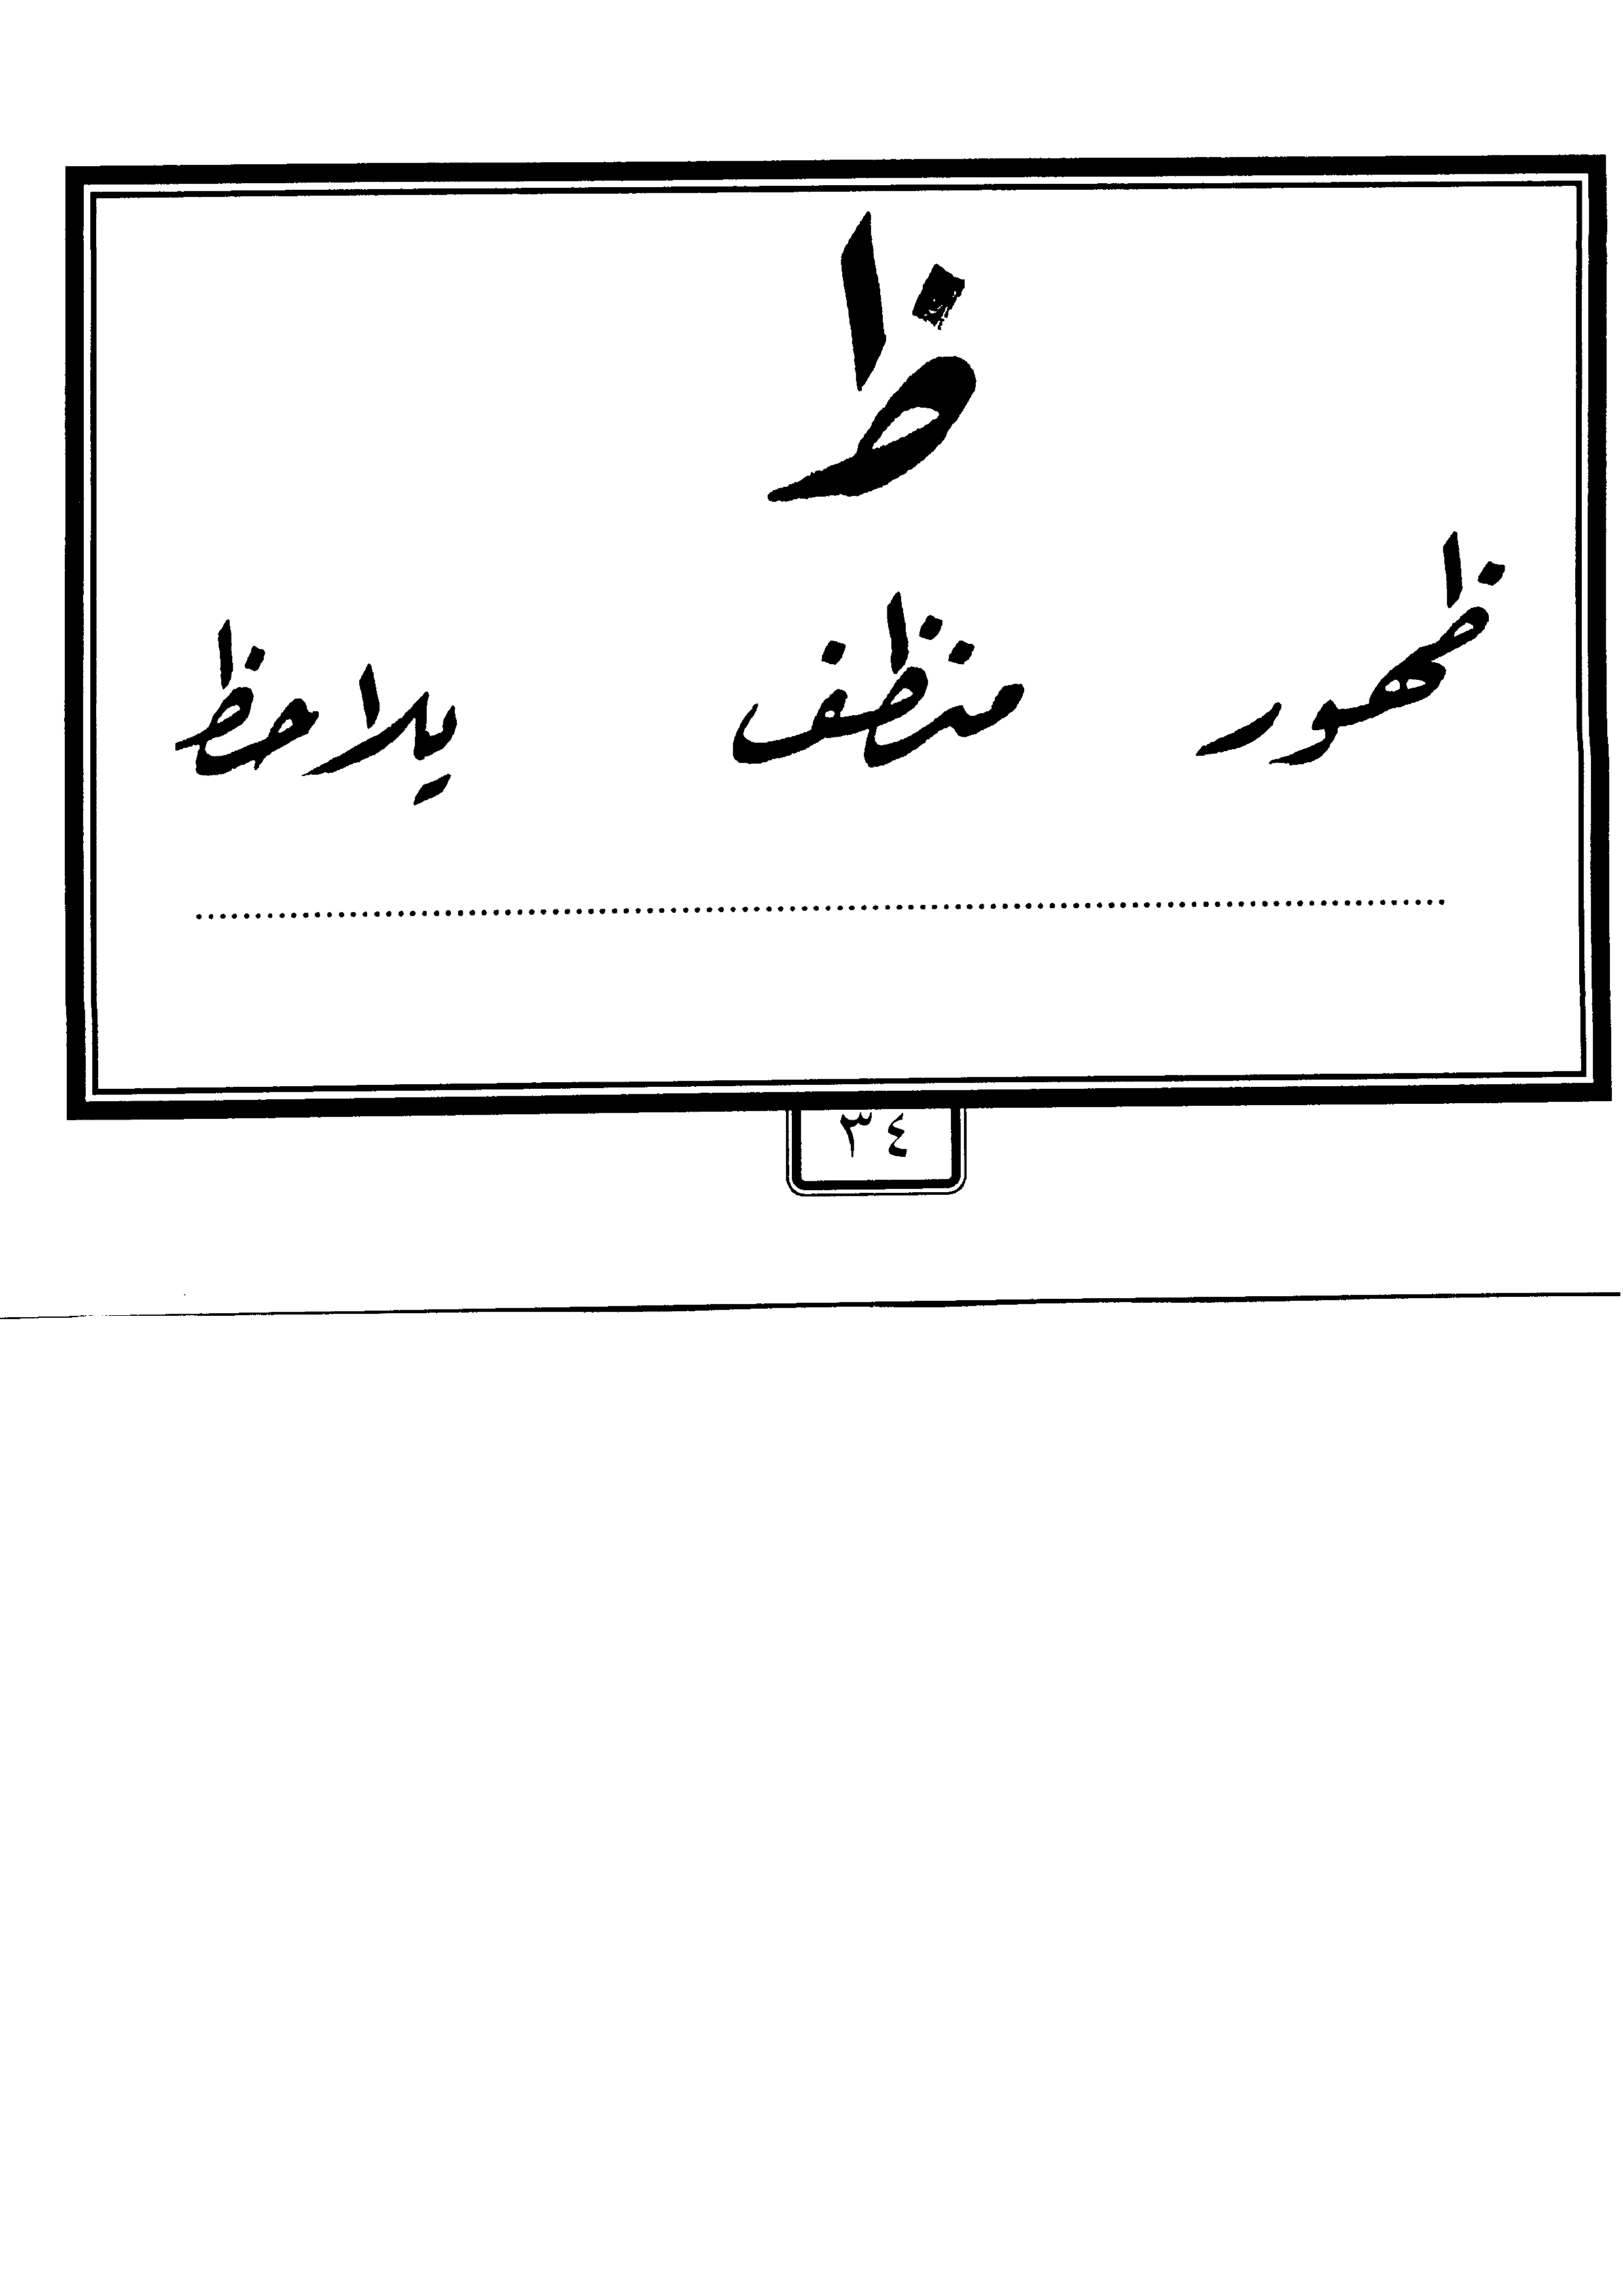 ظ
ظهور منظف يلاحظ
٣٤